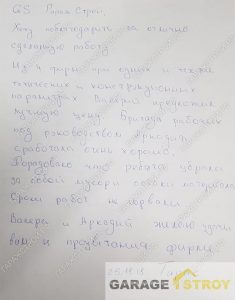 GS Гараж Строй,
Хочу поблагодарить за отлично
сделанную работу
Из 4 фирм при одних и тех же
технических и конструкционных
параметрах Валерий предложил
лучшую цену. Бригада рабочих
под руководством Аркадия
сработала очень хорошо.
Порадовало что ребята убрали
за собой мусор и остатки материала
Сроки работ не сорвали.
Валерий и Аркадий желаю удачи
вам и процветания фирме.
GARAGE STROY